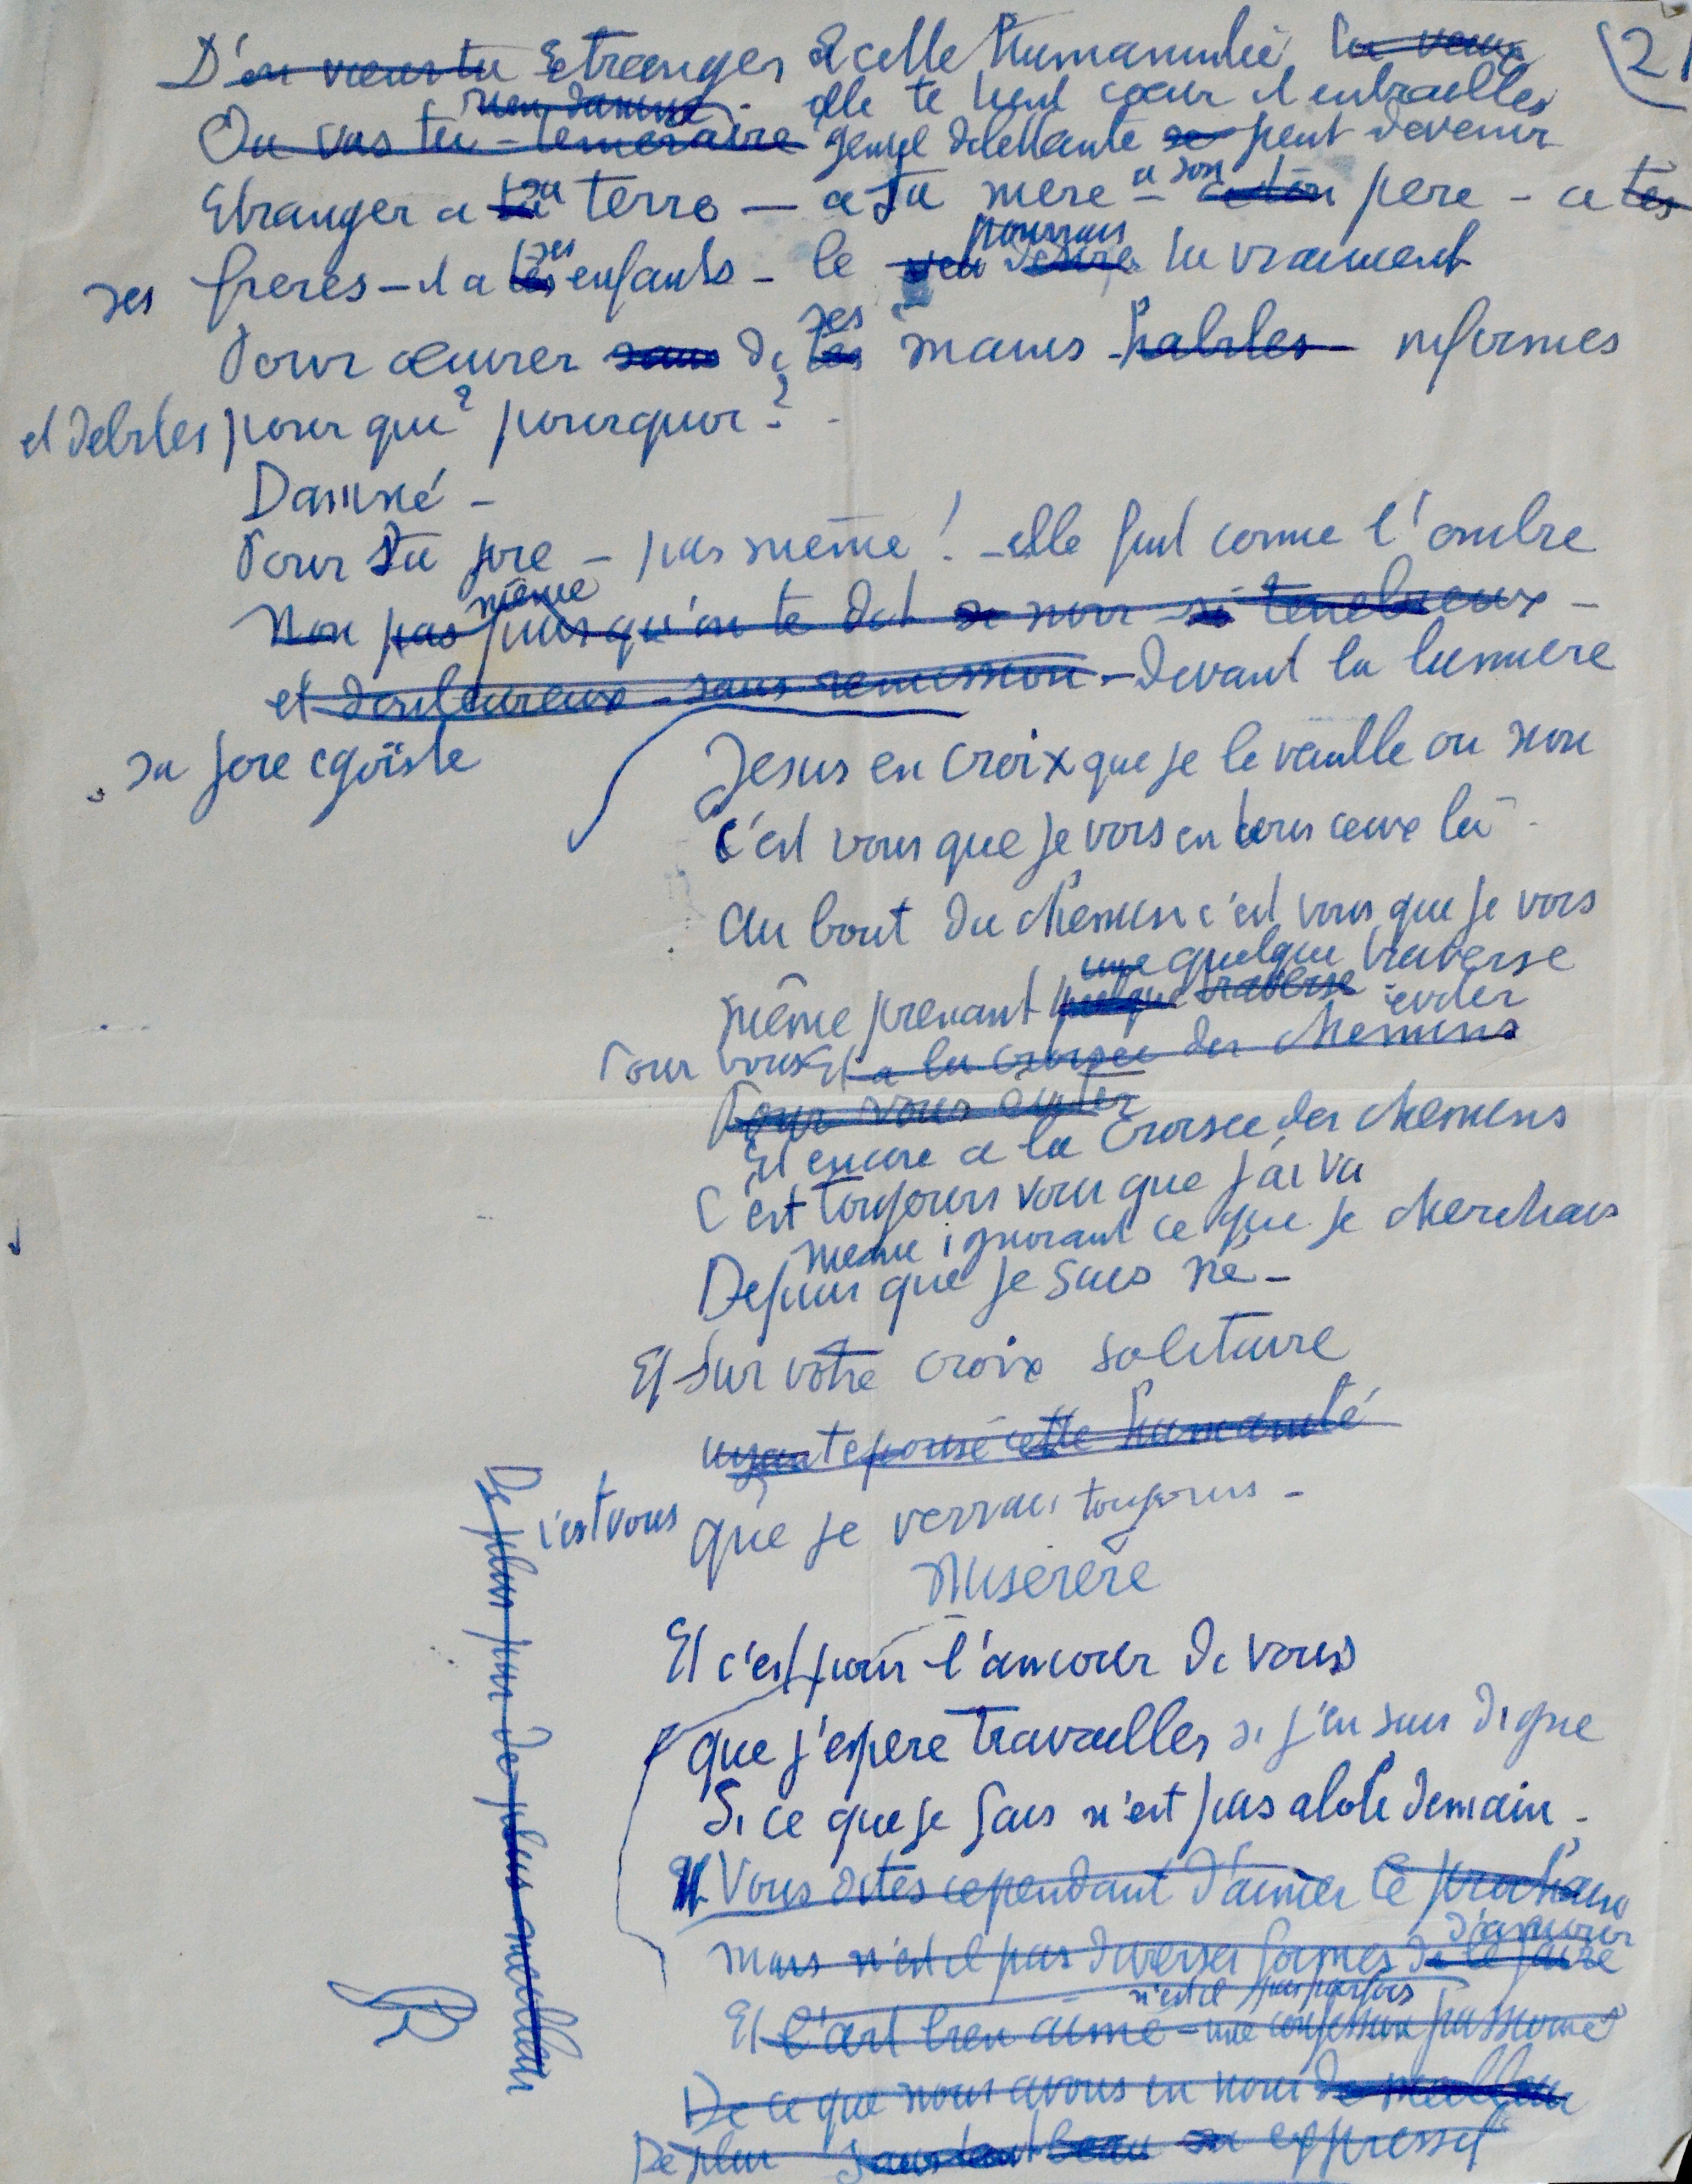 D'ou viens tu Etranger à cette humanité tu veux (2)
rien damné - elle te tient coeur et entrailles
Ou vas tu - temeraire peut devenir
Etranger a ta sa terre - a sa mere - a son a ton pere - a tes
ses freres - et a tes ses enfants - le veu desire pourrais tu vraiment
Pour œuvrer sans de tes ses mains habiles informes
et debiles pour qui? pourquoi?
Damné -
Pour sa joie - pas même! - elle fuit comme l'ombre
Non pas même puisqu'on te dit si noir - si tenebreux -
et douloureux - sans remission - devant la lumiere
sa joie egoïste
Jesus en croix que je le veuille ou non
C'est vous que je vois en tous ceux là -
Au bout du chemin c'est vous que je vois
une quelque traverse
même prenant quelque traverse
eviter
Pour vous Et a la croisée des chemins
Pour vous eviter
Et encore a la croisée des chemins
C'est toujours vous que j'ai vu
meme ignorant ce que je cherchais
Depuis que je suis né -
Et Sur votre croix solitaire
ayant epousé cette humanité
c'est vous que je verrai toujours -
Miserere
Et c'est pour l'amour de vous
que j'espere travailler si j'en suis digne
Si ce que je fais n'est pas aboli demain -
Et Vous dites cependant d'aimer le prochain
d'amour
mais n'est il pas diverses formes de le faire
n'est il pas parfois
Et l'art bien aimé - une confession passionné
De ce que nous avons en nous de meilleur
De plus expressif
De plus pur de plus meilleur